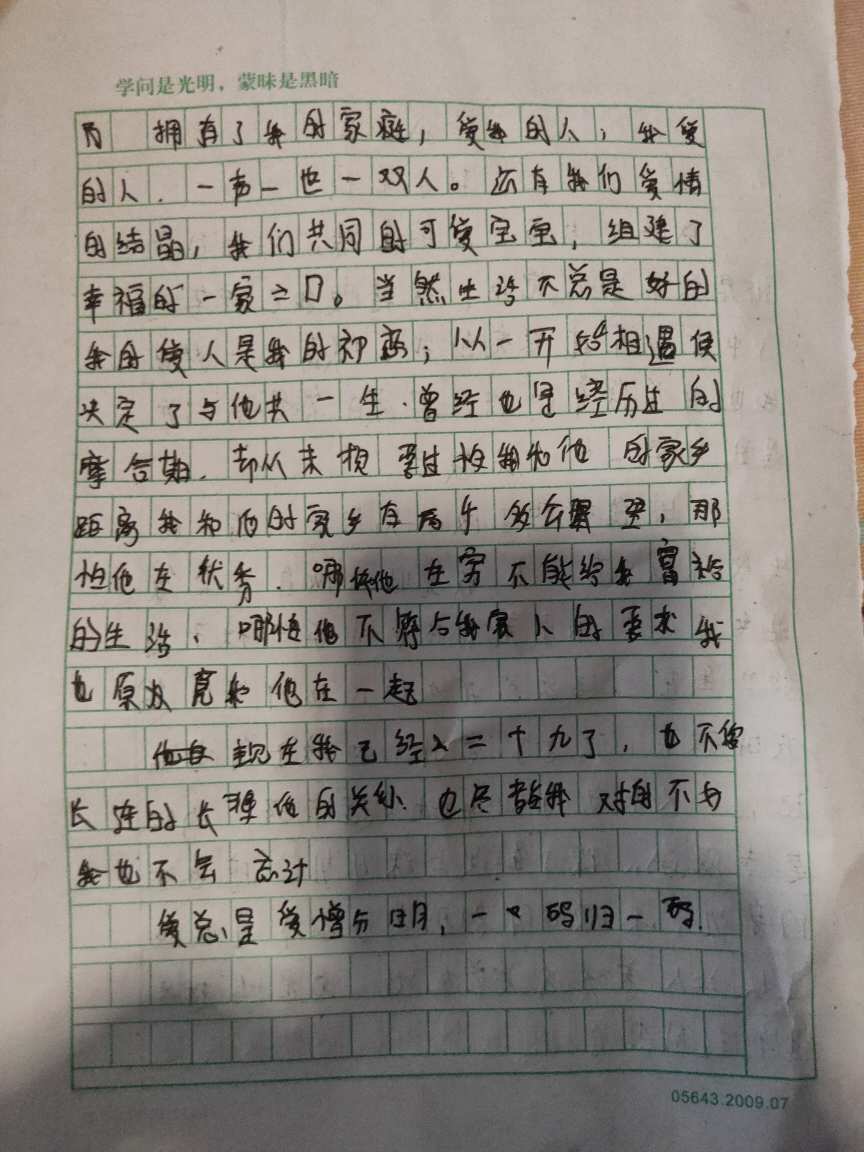 学问是光明，蒙昧是黑暗
拥有了我的家庭，爱我的人，我爱
的人．一声一世一双人。还有我们爱情
的结晶，我们共同的可爱宝宝，组建了
幸福的一家三口。当然生活不总是好的
我的爱人是我的初恋；从一开始相遇便
决定了与他共一生．曾经也是经历过的
摩合期．却从未想要过被我和他的家乡
距离我和他的家乡有多么遥，那
怕他在优秀．哪怕他在穷不能给我富裕
的生活、哪怕他不符合我家人的要求我
也原在一起
现在我已经二十九了，也不
长的长的关，也我对的不
我也不会忘计
爱总是爱憎分明，一码归一码．
05643.2009.07